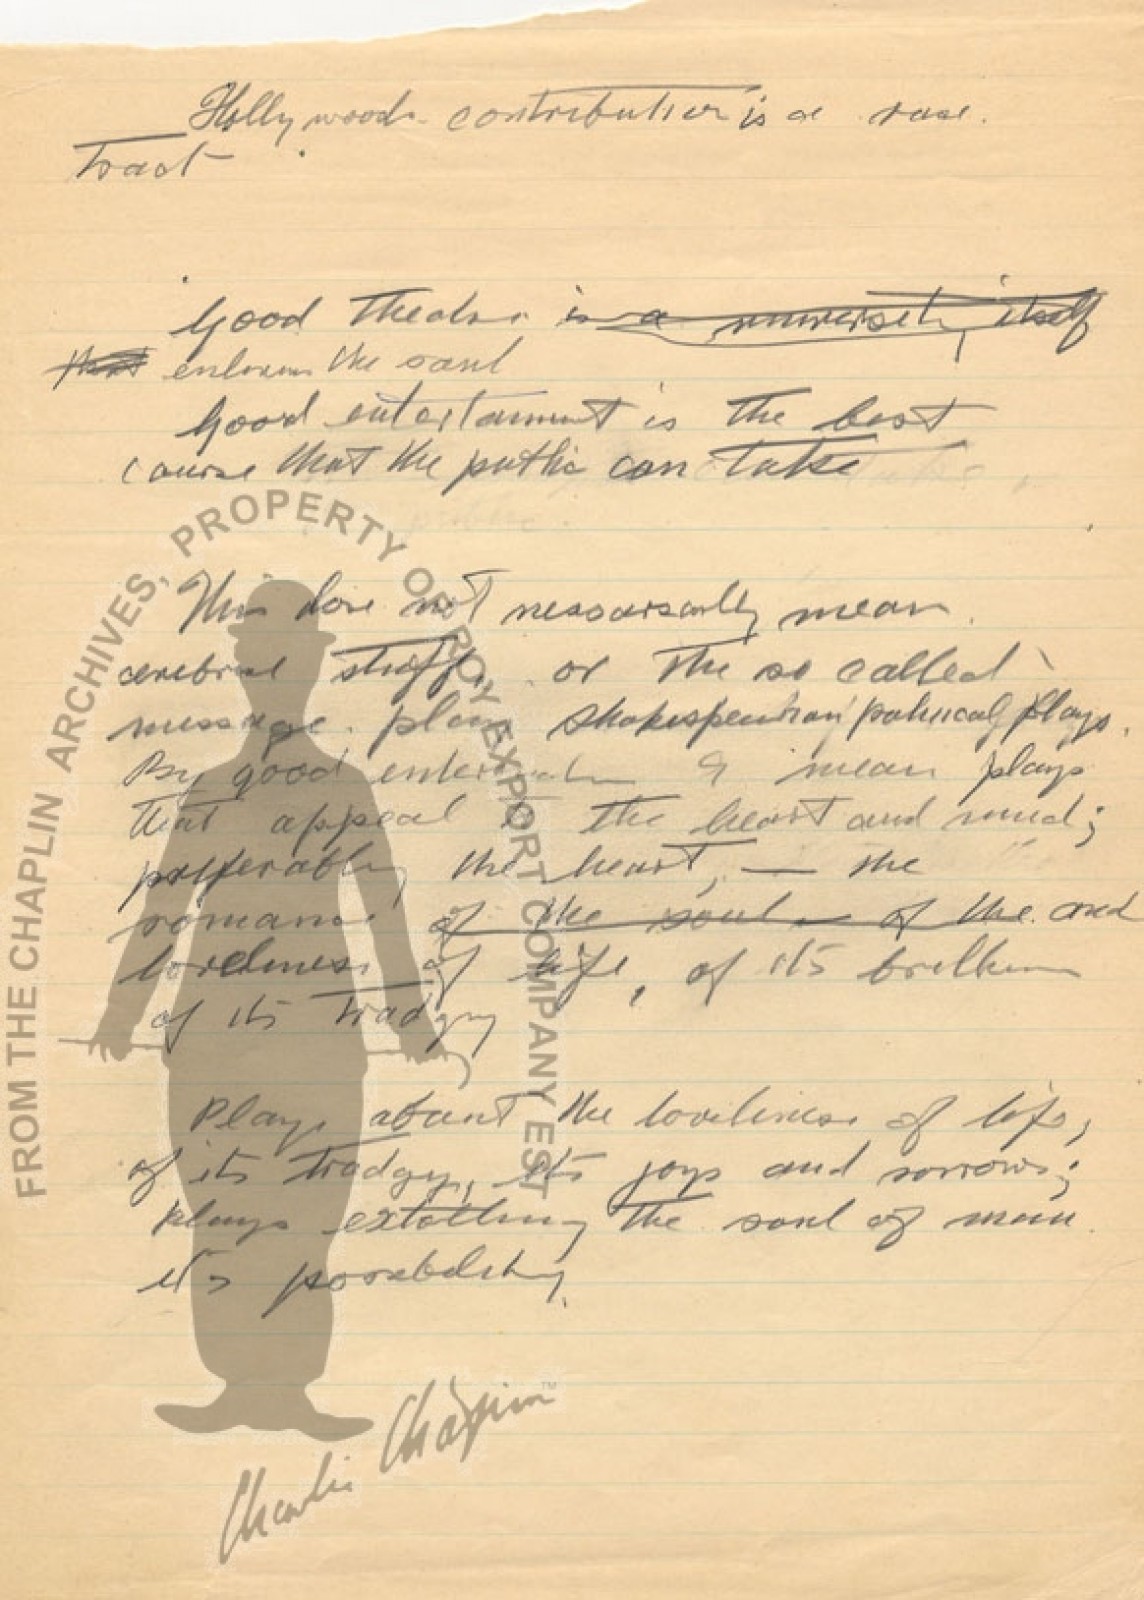 Hollywoods contribution is a rase
tract
Good theatre is a university itself
that enlivens the soul
Good entertainment is the best
course that the public can take
This dose not nessarsarily mean
cerebral stuff, or the so called
message plays shakespearian political plays.
By good entertainment I mean plays
that appeal to the heart and mind;
prefferably the heart, — the
romance of the soul of the and
loveliness of life, of its
of its tradgey
Plays about the loveliness of life,
of its tradgey, its joys and sorrows;
plays extolling the soul of man
its possibility
FROM THE CHAPLIN ARCHIVES, PROPERTY OF ROY EXPORT COMPANY EST
Charlie Chaplin
TM